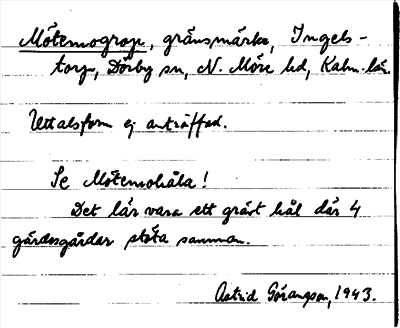 Mötemograp, gränsmärke, Ingels-
torp, Dörby sn, N. Möre hd, Kalm. län.
Uttalsform ej anträffad.
Se Mötemohåla!
Det lär vara ett grävt hål där 4
gärdesgårdar stöta samman.
Astrid Göransson, 1943.